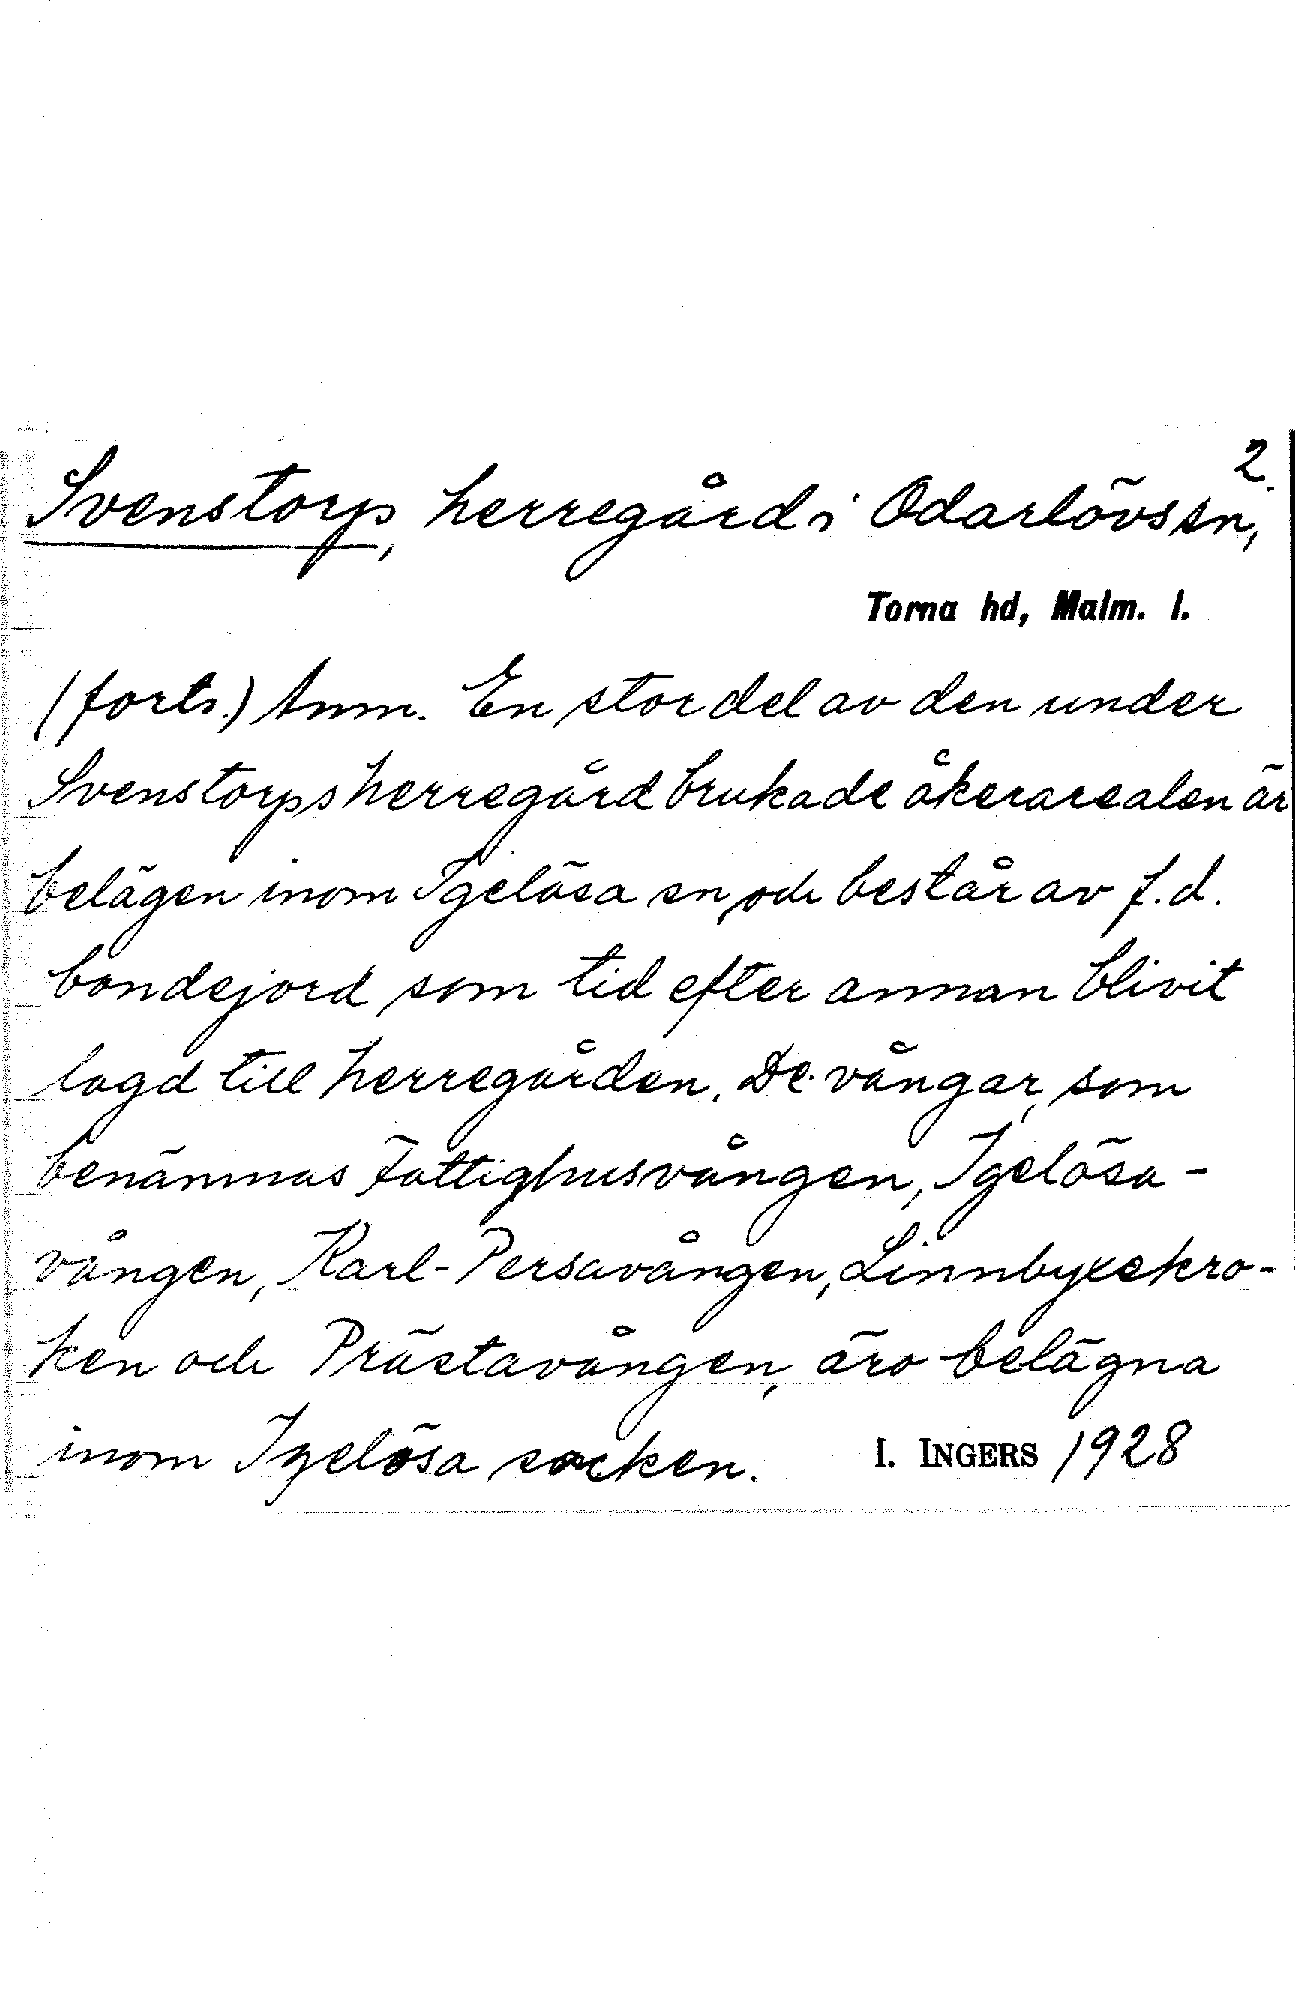 2.
Svenstorp, herregård i Odarlövs sn,
Torna hd, Malm. l.
(forts.) Anm. En stor del av den under
Svenstorps herregård brukade åkerarealen är
belägen inom Igelösa sn, och består av f.d.
bondejord som tid efter annan blivit
lagd till herregården. De vångar, som
benämnas Fattighusvången, Igelösa-
vången, Karl-Persavången, Linnbyxekro-
ken och Prästavången, äro belägna
inom Igelösa socken. I. INGERS 1928